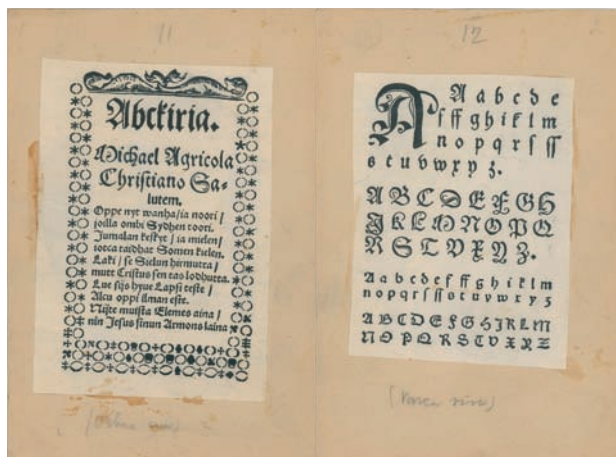 11
Abckiria.
Michael Agricola
Christiano Sa-
lutem.
Oppe nyt wanha/ia noori/
joilla ombi Sydhen toori.
Jumalan keskyt/ia mielen/
iotca taidhat Somen kielen.
Laki/se Sielun hirmutta/
mutt Cristus sen tas lodhutta.
Lue sijs hyue Lapsi teste/
Alcu oppi ilman este.
Nijte muista Elemes aina/
nin Jesus sinun Armons laina
12
A A a b c d e
f ff g h i k l m
n o p q r s ſ ſſ
s t u v w x y z.
A B C D E F G H
J K L M N O P Q
R S T V X Y Z.
A a b c d e f ff g h i k l m
n o p q r s ſ ſſ s t u v w x y z
A B C D E F G H J K L M
N O P Q R S T V X Y Z